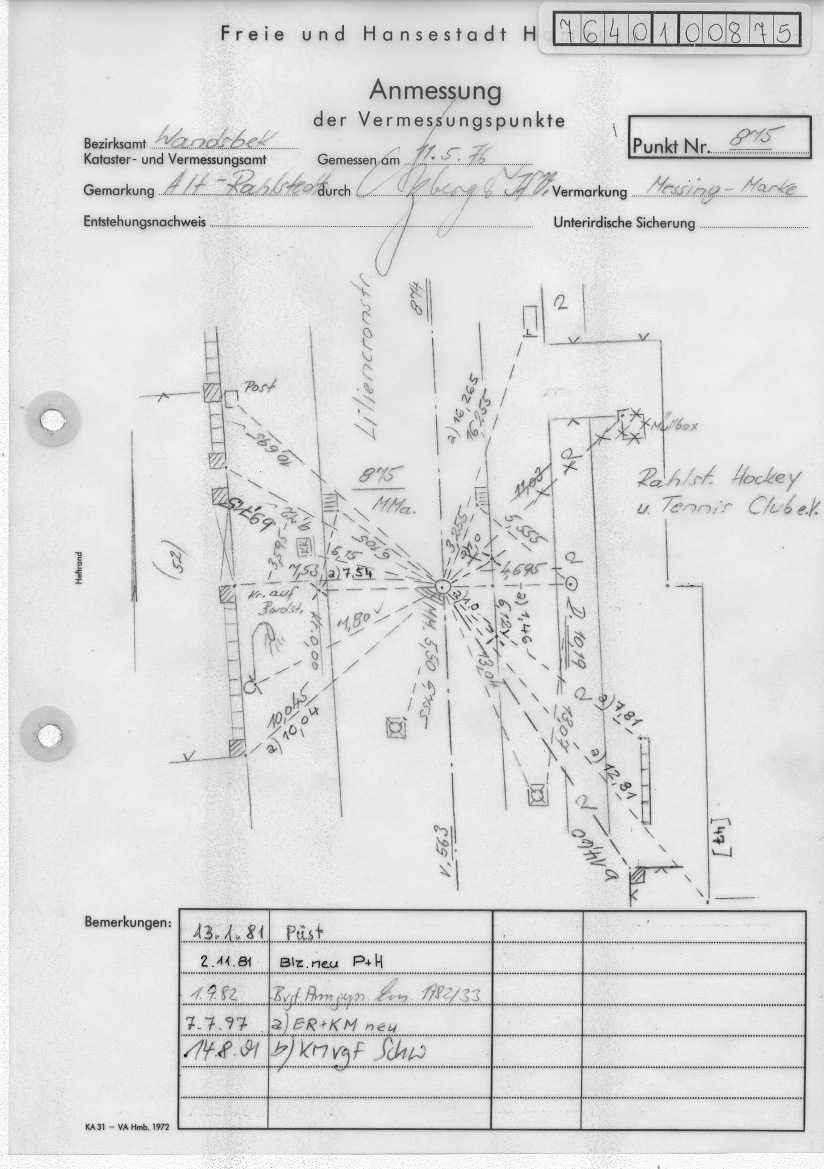 Freie und Hansestadt H
7640100875
Anmessung
der Vermessungspunkte
Bezirksamt Wandsbek
Kataster- und Vermessungsamt
Gemessen am 11.5.76
Punkt Nr. 875
Gemarkung Alt-Rahlstedt
durch
Vermarkung Messing-Marke
Entstehungsnachweis
Unterirdische Sicherung
Liliencronstr.
874
2
Post
a) 16,265
16,255
10,695
Müllbox
875
MMa.
11,03
Rahlst. Hockey
u. Tennis Club e.V.
Heftrand
(52)
KR
3,595
6,15
6,105
3,255
5,555
7,53
a) 7,54
4,695
Kr. auf
Bordst.
7,80
6,12
a) 1,94
D. 10,19
10,045
a) 10,04
13,04
13,07
a) 7,81
a) 12,81
2
2
V. 563
[47]
Bemerkungen:
13.1.81 Püst
2.11.81 Blz. neu P+H
1.9.82 1982/33
7.7.97 a) ER+KM neu
14.8.01 b) KM vgf Schw
KA 31 – VA Hmb. 1972